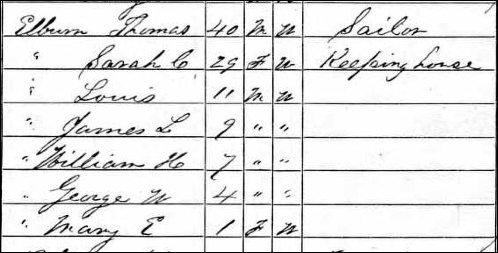 Elburn Thomas 40 M W Sailor
" Sarah C 29 F W Keeping house
" Louis 11 M W
" James L 9 " "
" William H 7 " "
" George W 4 " "
" Mary E 1 F W